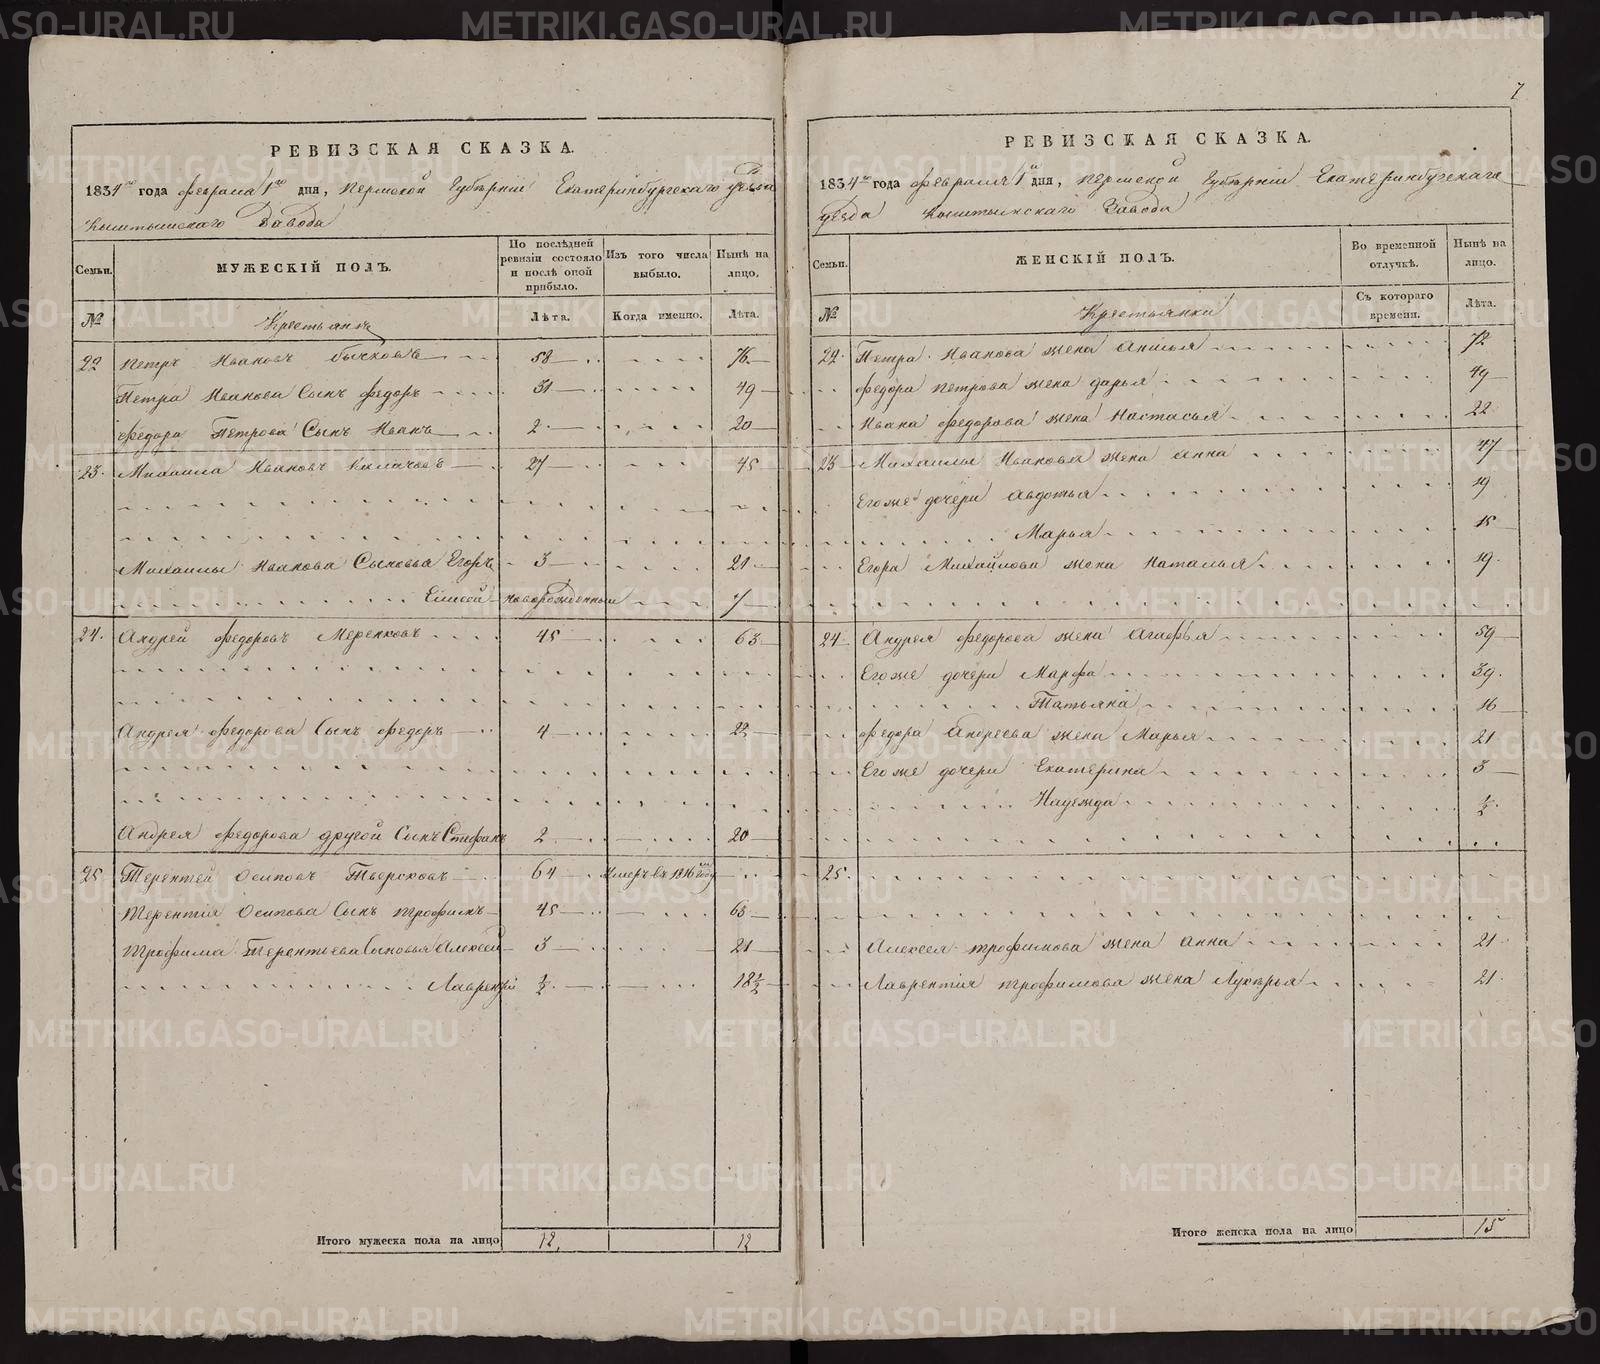 7
РЕВИЗСКАЯ СКАЗКА.
1834го года февраля 1го дня, Пермской Губернiи Екатеринбургскаго уѣзда
Кыштымскаго Завода
Семьи. МУЖЕСКIЙ ПОЛЪ. По послѣдней ревизiи состояло и послѣ оной прибыло. Изъ того числа выбыло. Нынѣ на лицо.
№ Крестьянъ Лѣта. Когда именно. Лѣта.
22 Петръ Ивановъ Бычковъ 58 76
Петра Иванова Сынъ Федоръ 31 49
Федора Петрова Сынъ Иванъ 2 20
23. Михаила Ивановъ 27 45
Михаилы Иванова Сыновья Егоръ 3 21
Елисей новорожденный 7
24. Андрей Федоровъ Меренковъ 45 63
Андрея Федорова Сынъ Федоръ 4 22
Андрея Федорова другой Сынъ Стефанъ 2 20
25 Терентей Осиповъ Тверсковъ 64 Умеръ въ 1816 году
Терентiя Осипова Сынъ Трофимъ 45 63
Трофима Терентьева Сыновья Алексей 3 21
Лаврентiй ½ 18½
Итого мужеска пола на лицо 12. 12
РЕВИЗСКАЯ СКАЗКА.
1834го года февраля 1й дня, Пермской Губернiи Екатеринбургскаго
уезда Кыштымскаго Завода
Семьи. ЖЕНСКIЙ ПОЛЪ. Во временной отлучкѣ. Нынѣ на лицо.
№ Крестьянки Съ котораго времени. Лѣта.
22. Петра Иванова жена Анисья 72
Федора Петрова жена Дарья 49
Ивана Федорова жена Настасья 22
23 Михаилы Иванова жена Анна 47
Его же дочери Авдотья 19
Марья 15
Егора Михайлова жена Наталья 19
24 Андрея Федорова жена Агафья 59
Его же дочери Марфа 39.
Татьяна 16
Федора Андреева жена Марья 21
Его же дочери Екатерина 3
Надежда ½
25.
Алексея Трофимова жена Анна 21
Лаврентiя Трофимова жена Лукерья 21
Итого женска пола на лицо 15
METRIKI.GASO-URAL.RU